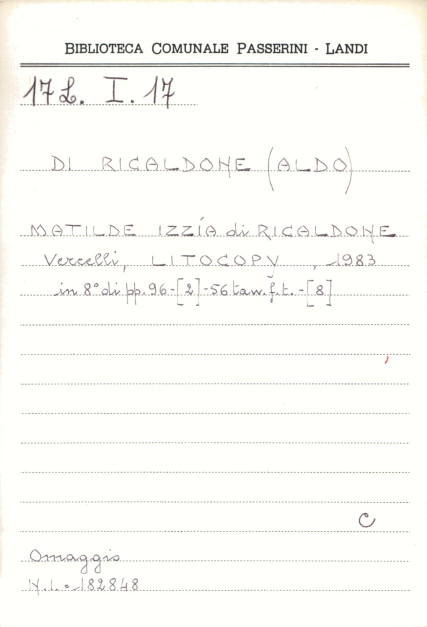 BIBLIOTECA COMUNALE PASSERINI - LANDI
17 L. I. 17
DI RICALDONE (ALDO)
MATILDE IZZÍA di RICALDONE
Vercelli, LITOCOPY, 1983
in 8° di pp. 96-[2]-56 tav. f. t. -[8]
C
Omaggio
N.I. = 182848